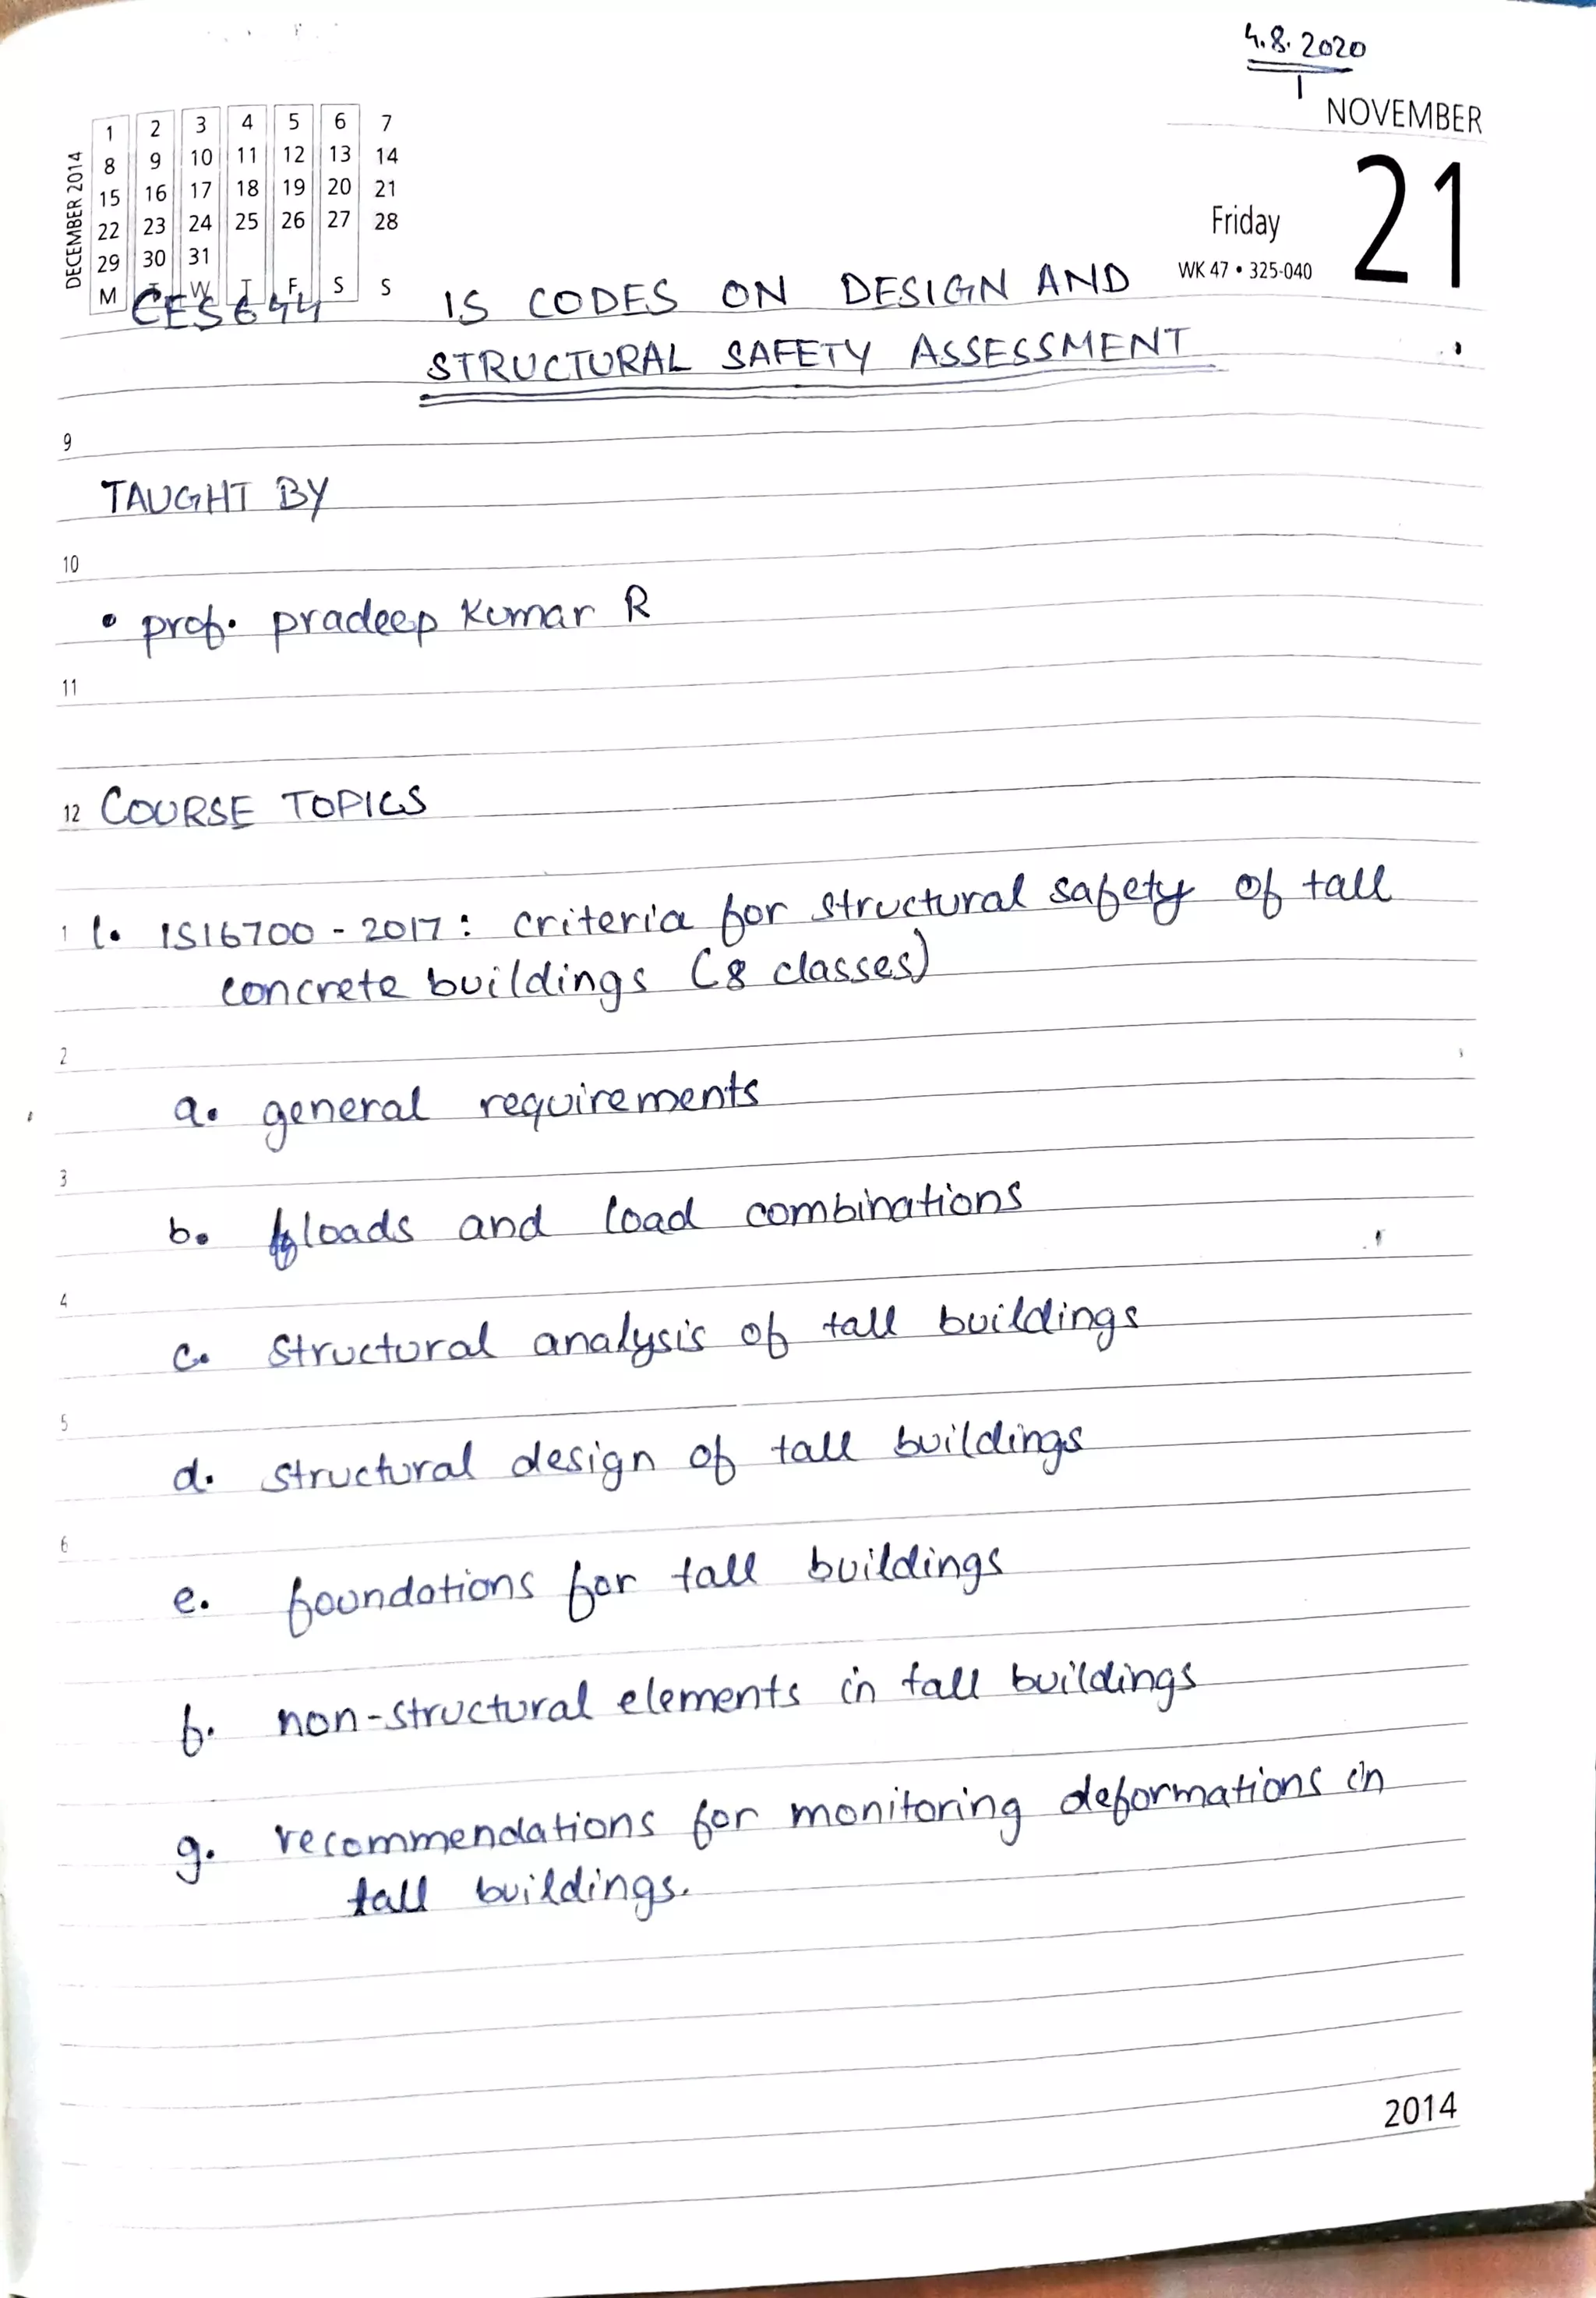 4.8.2020
NOVEMBER
21
Friday
WK 47 • 325-040
DECEMBER 2014
1 2 3 4 5 6 7
8 9 10 11 12 13 14
15 16 17 18 19 20 21
22 23 24 25 26 27 28
29 30 31
M T W T F S S
CES644 IS CODES ON DESIGN AND
STRUCTURAL SAFETY ASSESSMENT
9
TAUGHT BY
10
• prof. pradeep Kumar R
11
12 COURSE TOPICS
1 1. IS16700 - 2017: criteria for structural safety of tall
concrete buildings (8 classes)
2
a. general requirements
3
b. loads and load combinations
4
c. structural analysis of tall buildings
5
d. structural design of tall buildings
6
e. foundations for tall buildings
f. non-structural elements in tall buildings
g. recommendations for monitoring deformations in
tall buildings.
2014